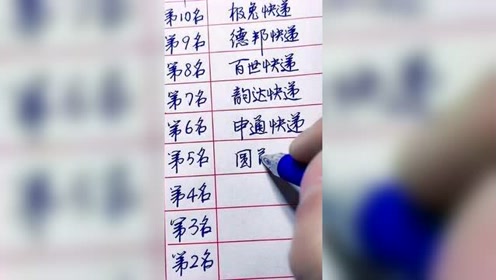 第10名 极兔快递
第9名 德邦快递
第8名 百世快递
第7名 韵达快递
第6名 申通快递
第5名 圆
第4名
第3名
第2名